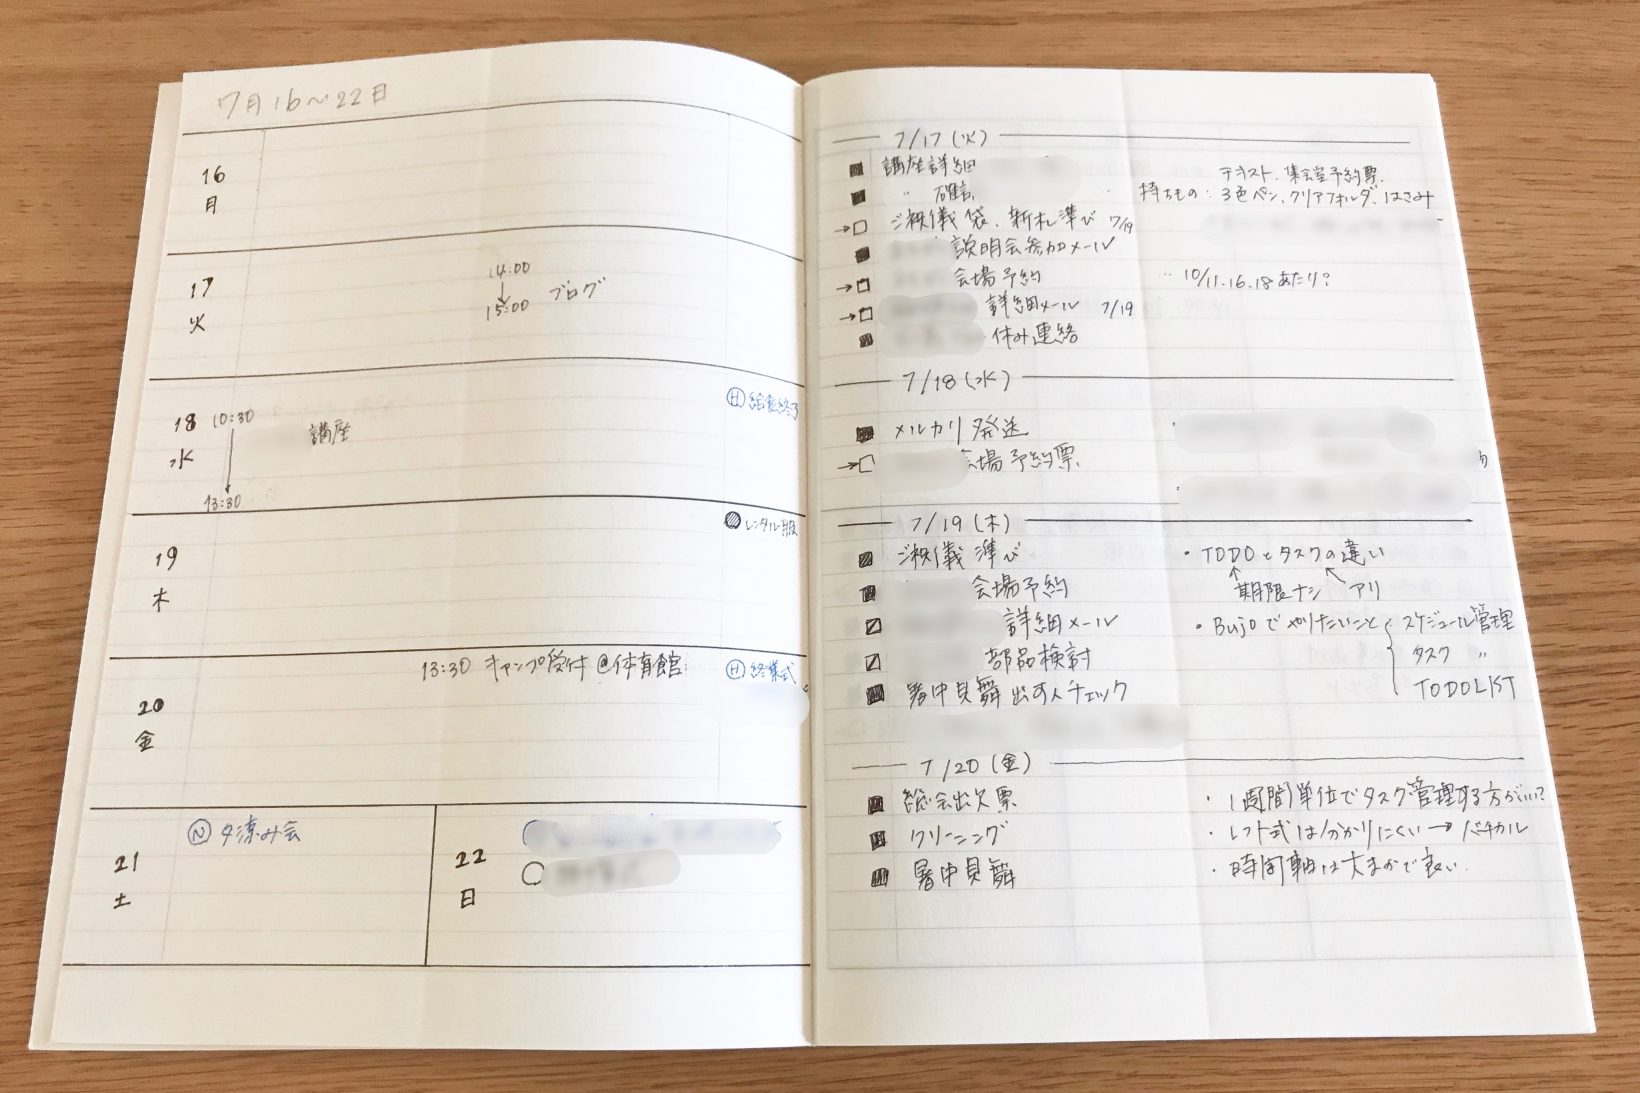 7月16〜22日
16
月
17
火
14:00
↓
15:00 ブログ
18
水
10:30
講座
13:30
Ⓗ 給食終了
19
木
レンタル
20
金
13:30 キャンプ受付 @体育館
Ⓗ 終業式
21
土
Ⓝ 夕涼み会
22
日
7/17 (火)
講座詳細
〃 確認
→□ ご祝儀袋、新札準び 7/19
説明会参加メール
→□ 会場予約
→□ 詳細メール 7/19
休み連絡
テキスト、集会室予約票
持ちもの:3色ペン、クリアフォルダ、はさみ
10/11.16.18あたり?
7/18 (水)
メルカリ発送
→□ 会場予約票
7/19 (木)
ご祝儀準び
会場予約
詳細メール
部品検討
暑中見舞出す人チェック
・TODOとタスクの違い
↑ ↖
期限ナシ アリ
・BuJoでやりたいこと { スケジュール管理
タスク 〃
TODOLIST
7/20 (金)
総会出欠票
クリーニング
暑中見舞
・1週間単位でタスク管理する方がいい?
・レフト式は分かりにくい→バーチカル
・時間軸は大まかで良い.